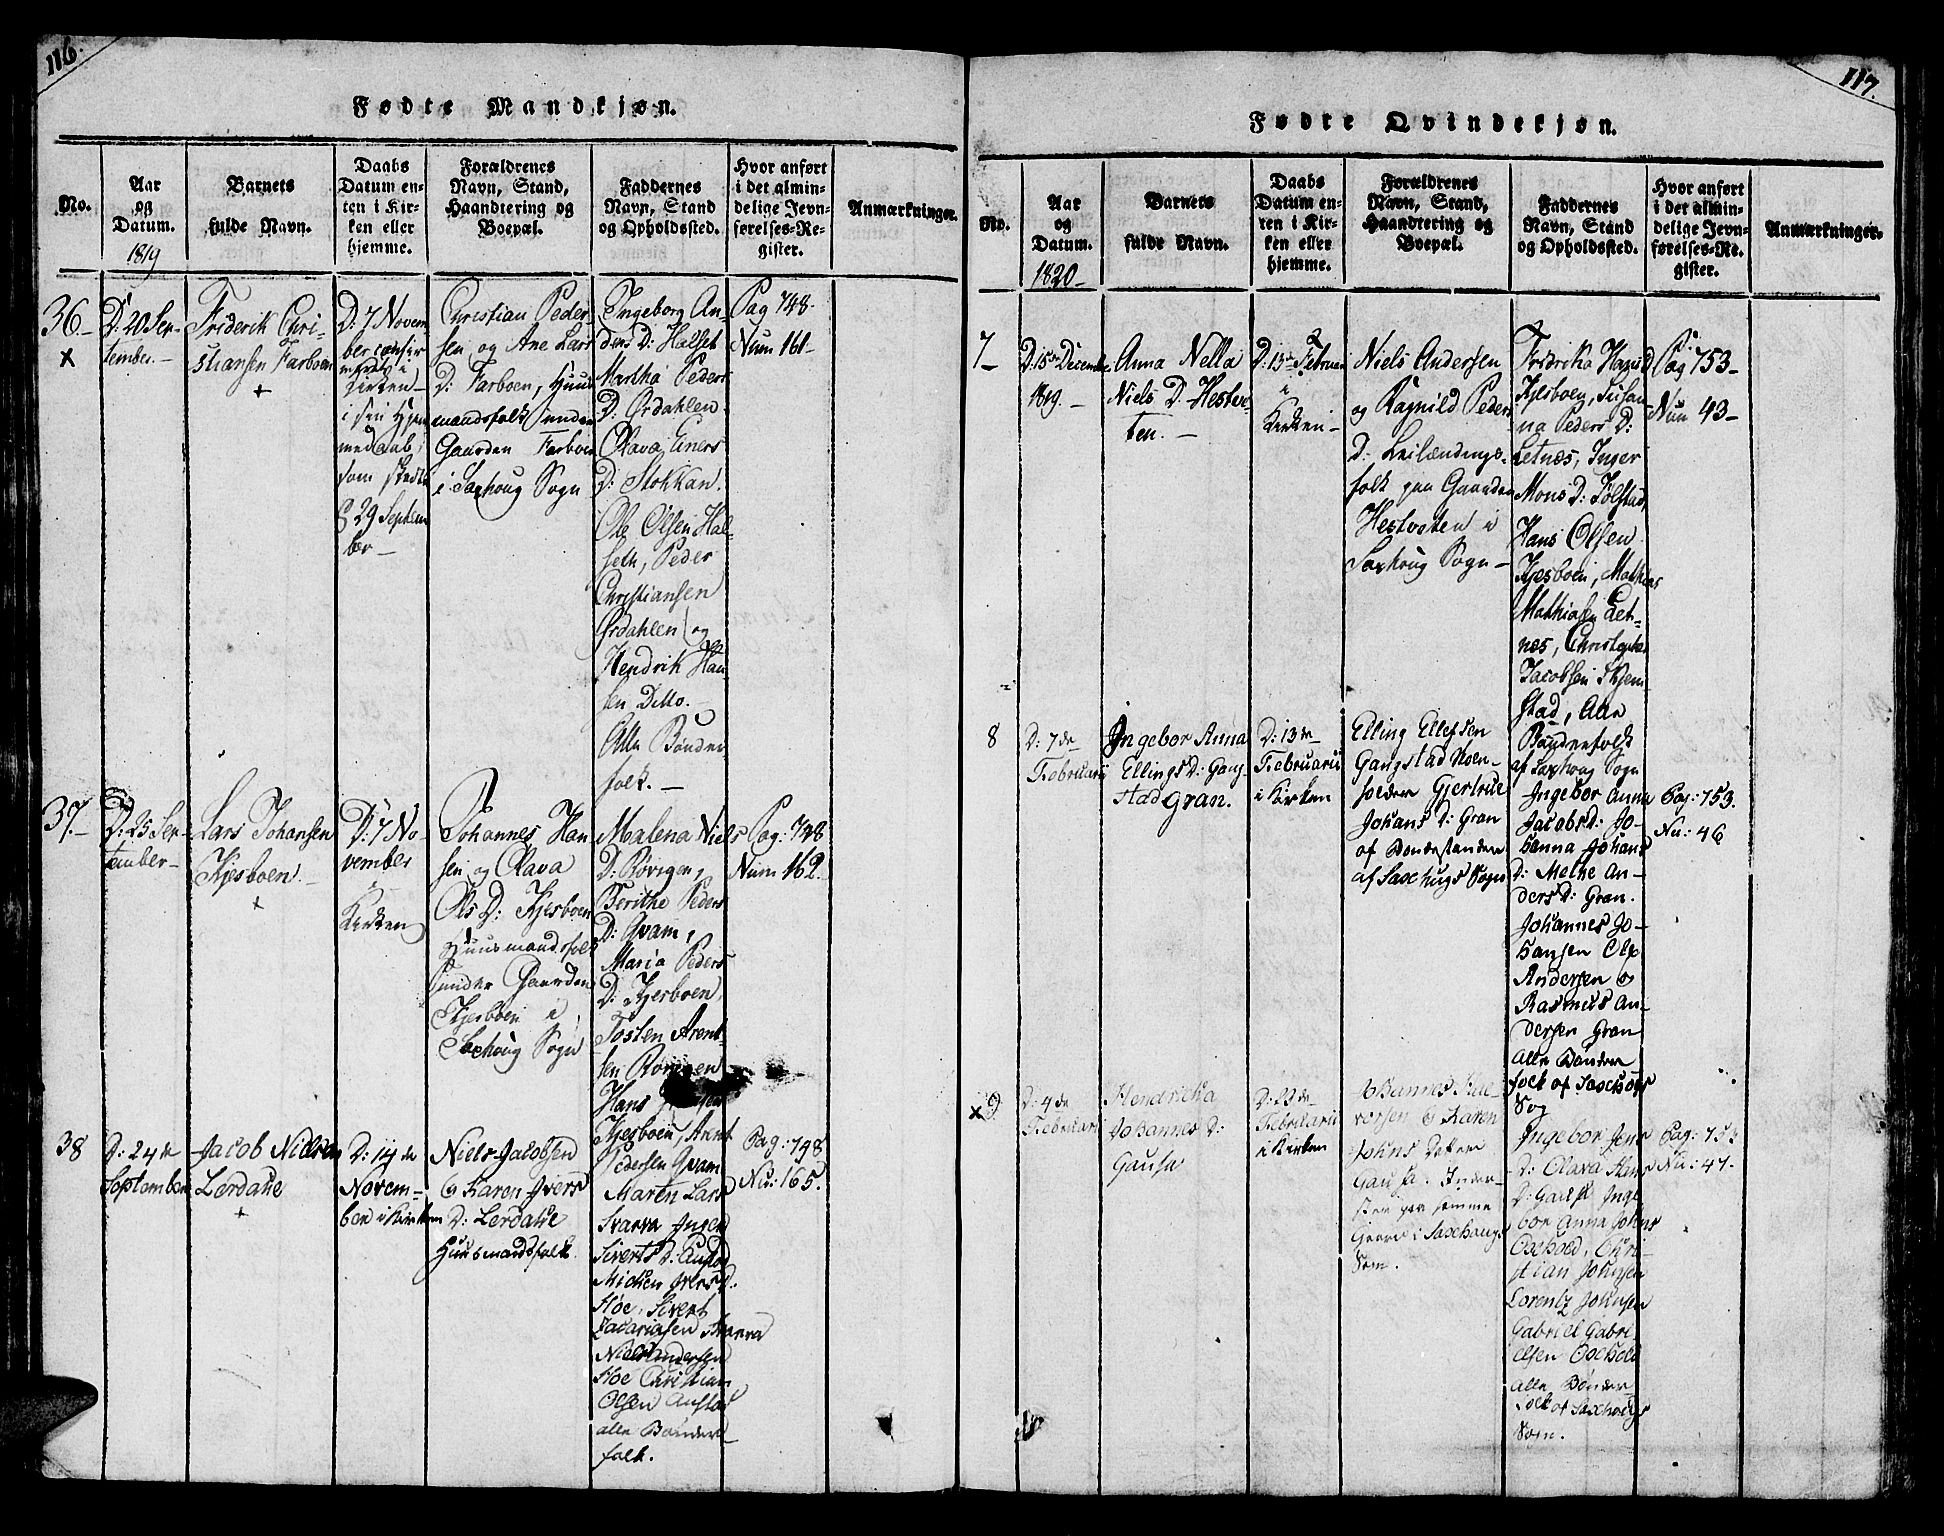 116.
Fødte Mandkjøn.
No.
Aar
og
Datum.
1819
Barnets
fulde Navn.
Daabs
Datum en-
ten i Kir-
ken eller
hjemme.
Forældrenes
Navn, Stand,
Haandtering og
Boepæl.
Faddernes
Navn, Stand
og Opholdssted.
Hvor anført
i det almin-
delige Jevn-
førelses-Re-
gister.
Anmærkninger.
36.
x
D: 20 Sep-
tember.
Friderik Chri-
stiansen Farboen
+
D: 7 Novem
ber confir
meret i
Kirken
i sin Hjem
medaab,
som skedte
29 Septem
ber
Christian Peder-
sen og Ane Lars
D: Farboen, Huus
mandsfolk under
Gaarden Farboen
i Saxhoug Sogn
Ingeborg An-
ders D: Halset
Martha Peders
D: Ørdahlen
Olava Einers
D: Stokkan.
Ole Olsen Hal-
seth, Peder
Christiansen
Ørdahlen og
Hendrik Han
sen Ditto.
Alle Bønder
folk.
Pag 748
Num 161
37.
D: 25 Sep-
tember
Lars Johansen
Kjesboen.
+
D: 7 No-
vember
i
Kirken
Johannes Han
sen og Olava
Ols D: Kjesboen
Huusmandsfolk
under Gaarden
Kjesboen i
Saxhoug Sogn
Malena Niels
D: Røvigen,
Berithe Peders
D: Qvam,
Maria Peders
D: Kjesboen,
Tosten Arent-
sen Røvigen
Hans
Kjesboen, Arnt
Pedersen Qvam
Pag: 748
Num 162.
38
D: 24de
September
Jacob Nielsen
Lerdahe
+
D: 14de
Novem-
ber i Kirken
Niels Jacobsen
& Karen Ivers
D: Lerdahe
Huusmandsfolk
Marten Lars
Svarva Inger
Siverts D: Aufstad
Michen Ivers D:
Høe, Sivert
Zacariasen Svarva
Niels Andersen
Høe Christian
Olsen Aufstad
alle Bønder
folk.
Pag: 748
Nu: 165.
117.
Fødte Qvindekjøn.
No.
Aar
og
Datum.
1820
Barnets
fulde Navn.
Daabs
Datum en-
ten i Kir-
ken eller
hjemme.
Forældrenes
Navn, Stand,
Haandtering og
Boepæl.
Faddernes
Navn, Stand
og Opholdssted.
Hvor anført
i det almin-
delige Jevn-
førelses-Re-
gister.
Anmærkninger.
7
D: 15de December
1819.
Anna Nella
Niels D. Hestve-
ten.
D: 13de Februar
i
Kirken
Niels Andersen
og Ragnild Peders
D: Leilændings-
folk paa Gaarden
Hestveten i
Saxhoug Sogn
Fridrika Hans D
Kjesboen, Susan
na Peders D:
Letnæs, Inger
Mons D: Tolstad,
Hans Olsen
Kjesboen, Mathias
Mathiasen Let-
næs, Christopher
Jacobsen Skjem
stad, Alle
Bønderfolk
af Saxhoug Sogn
Pag 753
Num 43
8
D: 7de
Februarii
Ingebor Anna
Ellings D: Gang-
stad Gran.
D: 13de
Februarii
i Kirken
Elling Ellefsen
Gangstad Noen-
foldere Gjertrue
Johans D: Gran
af Bondestanden
af Saxhugs Sogn
Ingebor Anna
Jacobs D: Jo-
hanna Johans
D: Methe An-
ders D: Gran.
Johannes Jo-
hansen Ole
Andersen &
Rasmus An-
dersen Gran
alle Bønder
folk af Saxhougs
Sog
Pag: 753.
Nu: 46
x 9
D: 4de
Februarii
Hendricha
Johannes D:
Gausa
D: 22de
Februarii
i Kirken
Johannes
& Karen
Johns Datter
Gausa. Inder-
ster paa samme
Gaard i Saxhaugs
Sogn.
Ingebor Jens
D: Olava Hans
D: Gausa Inge
bor Anna Johns
Oxehoed, Chri-
stian Johnsen
Lorentz Johnsen
Gabriel Gabri
elsen Oxehoed
alle Bønder
folk af Saxhougs
Sogn.
Pag: 753
Nu: 47.